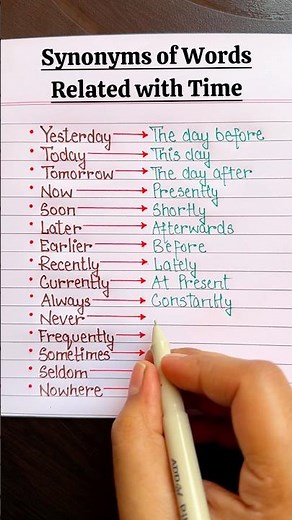 Synonyms of Words
Related with Time
• Yesterday → The day before
• Today → This day
• Tomorrow → The day after
• Now → Presently
• Soon → Shortly
• Later → Afterwards
• Earlier → Before
• Recently → Lately
• Currently → At Present
• Always → Constantly
• Never →
• Frequently →
• Sometimes →
• Seldom
• Nowhere